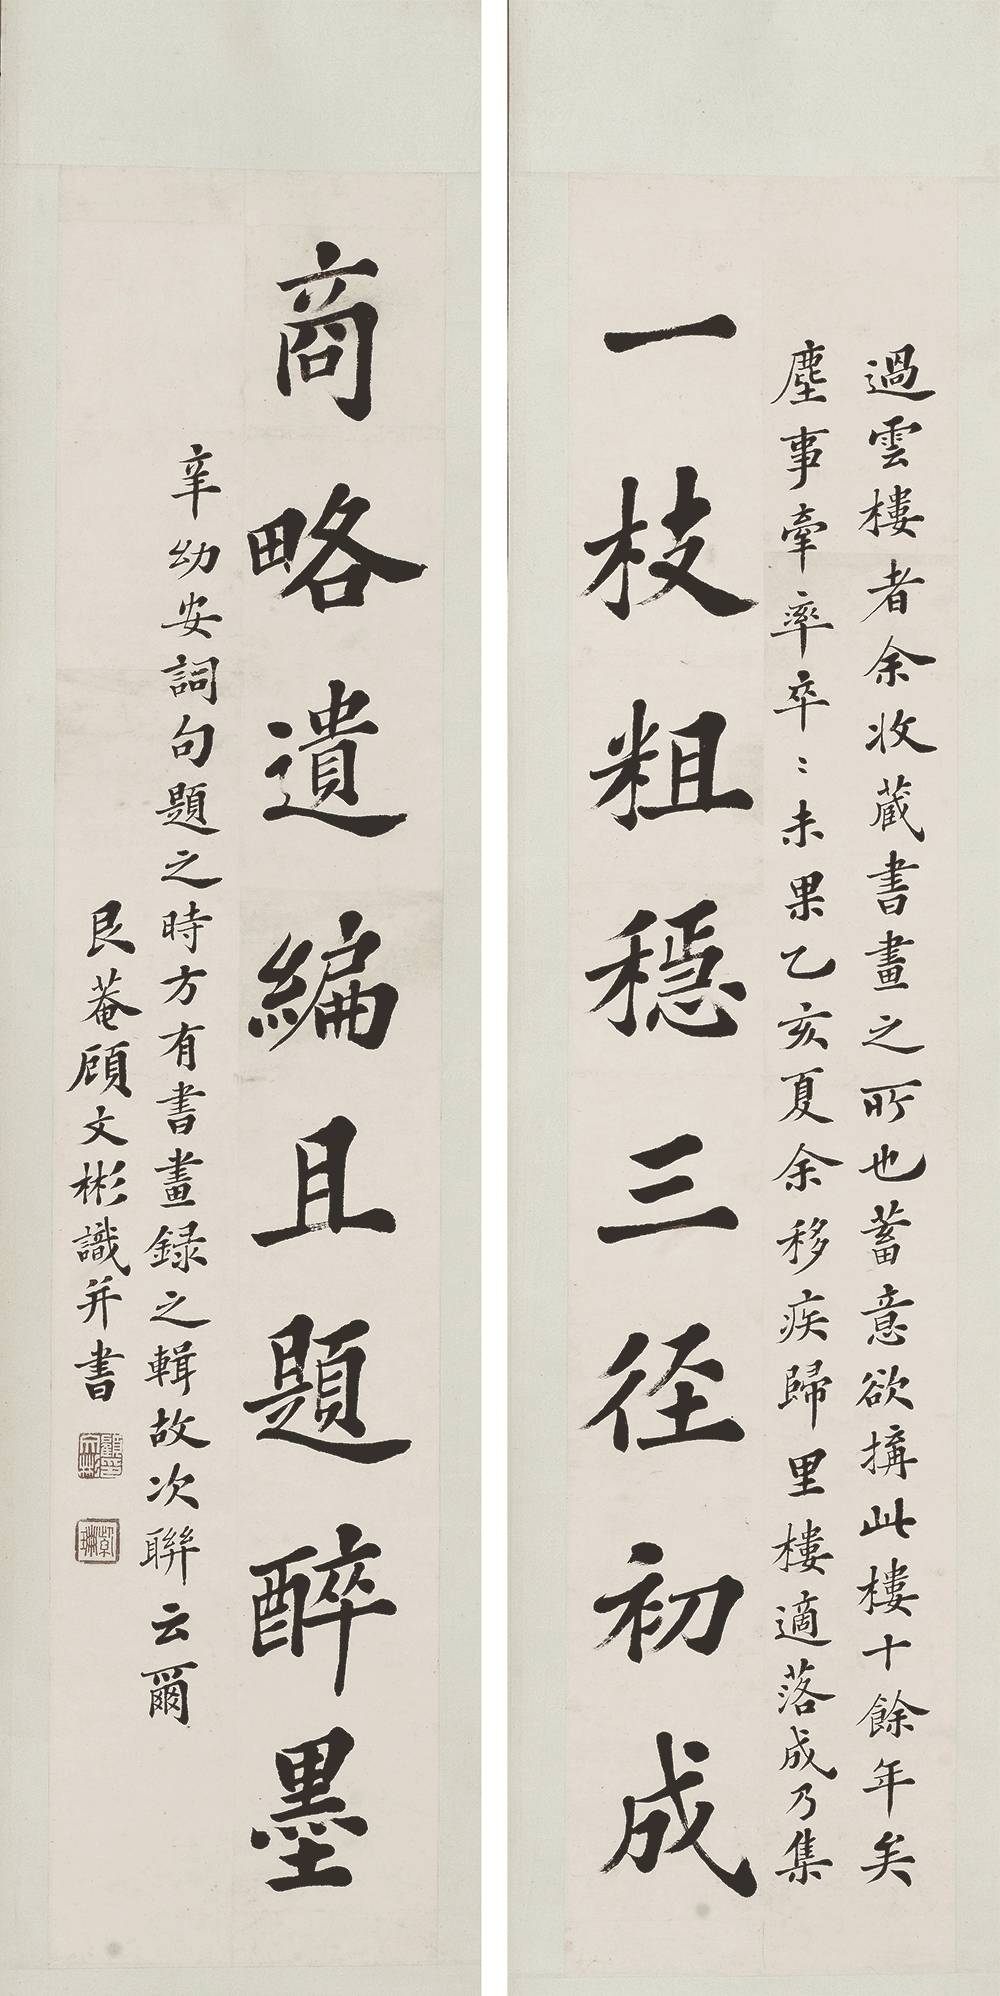 過雲樓者余收蔵書畫之所也蓄意欲搆此樓十餘年矣
塵事牽率卒〻未果乙亥夏余移疾歸里樓適落成乃集
一枝粗穩三径初成
商略遺編且題醉墨
辛幼安詞句題之時方有書畫録之輯故次聯云爾
艮菴顧文彬識并書
顧文彬印
紫珊